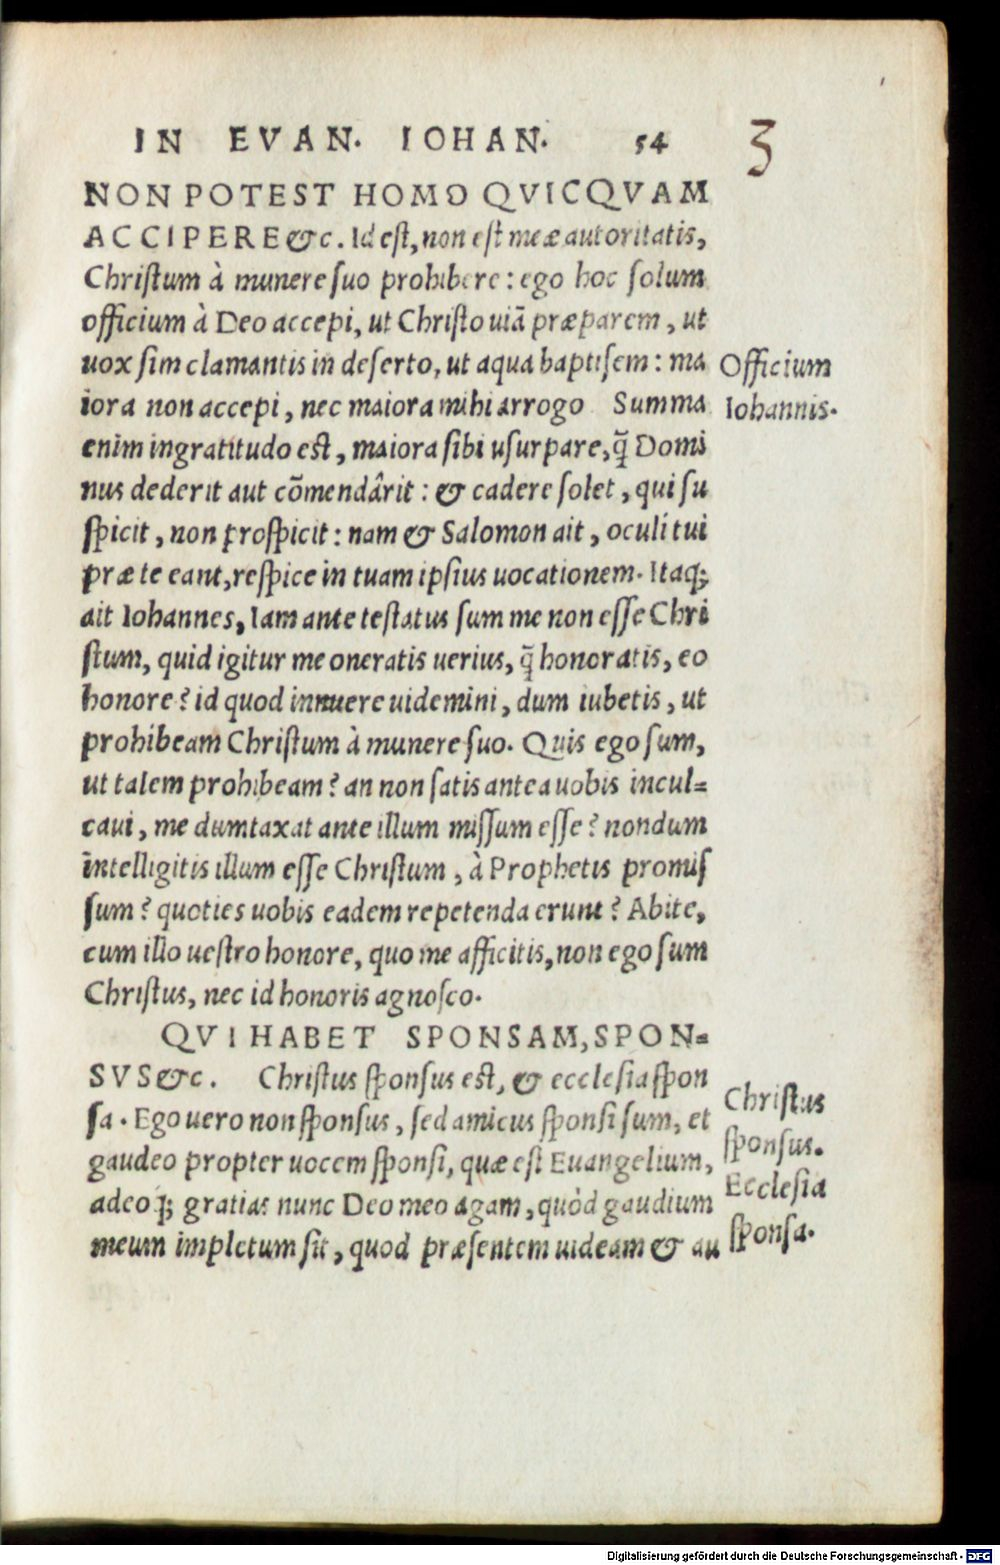 IN EVAN. IOHAN. 54
3
NON POTEST HOMO QVICQVAM
ACCIPERE &c. Id eſt, non eſt meæ autoritatis,
Chriſtum à munere ſuo prohibere: ego hoc ſolum
officium à Deo accepi, ut Chriſto uiã præparem, ut
uox ſim clamantis in deſerto, ut aqua baptiſem: ma
iora non accepi, nec maiora mihi arrogo Summa
enim ingratitudo eſt, maiora ſibi uſurpare, q̃ Domi
nus dederit aut cõmendârit: & cadere ſolet, qui ſu
ſpicit, non proſpicit: nam & Salomon ait, oculi tui
præ te eant, reſpice in tuam ipſius uocationem. Itaq;
ait Iohannes, Iam ante teſtatus ſum me non eſſe Chri
ſtum, quid igitur me oneratis uerius, q̃ honoratis, eo
honore? id quod innuere uidemini, dum iubetis, ut
prohibeam Chriſtum à munere ſuo. Quis ego ſum,
ut talem prohibeam? an non ſatis antea uobis incul=
caui, me dumtaxat ante illum miſſum eſſe? nondum
intelligitis illum eſſe Chriſtum, à Prophetis promiſ
ſum? quoties uobis eadem repetenda erunt? Abite,
cum illo ueſtro honore, quo me afficitis, non ego ſum
Chriſtus, nec id honoris agnoſco.
QVI HABET SPONSAM, SPON=
SVS &c. Chriſtus ſponſus eſt, & eccleſia ſpon
ſa. Ego uero non ſponſus, ſed amicus ſponſi ſum, et
gaudeo propter uocem ſponſi, quæ eſt Euangelium,
adeoq; gratias nunc Deo meo agam, quòd gaudium
meum impletum ſit, quod præſentem uideam & au
Officium
Iohannis.
Chriſtus
ſponſus.
Eccleſia
ſponſa.
Digitalisierung gefördert durch die Deutsche Forschungsgemeinschaft - DFG